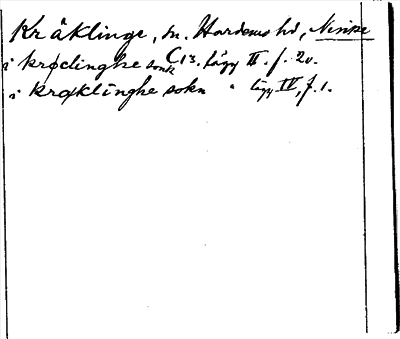 Kräklinge, sn. Hardemo hd, Nerike
i krødinghe sonk C 13. lägg III. f. 20.
i krøklinghe sokn " lägg IV, f. 1.